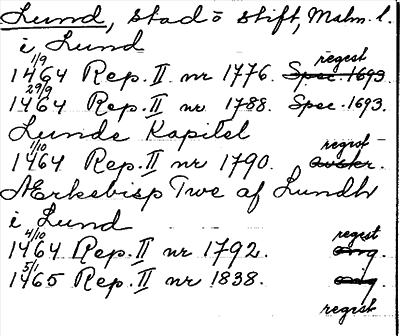 Lund, stad o stift, Malm. l.
i Lund
1/9 regest
1464 Rep. II nr 1776. Spec. 1693
29/9
1464 Rep. II nr 1788. Spec. 1693.
Lunde Kapitel
1/10 regest
1464 Rep. II nr 1790. avskr.
Ærkebisp Twe af Lundh
i Lund
4/10 regest
1464 Rep. II nr 1792. orig.
5/1
1465 Rep. II nr 1838. orig.
regest